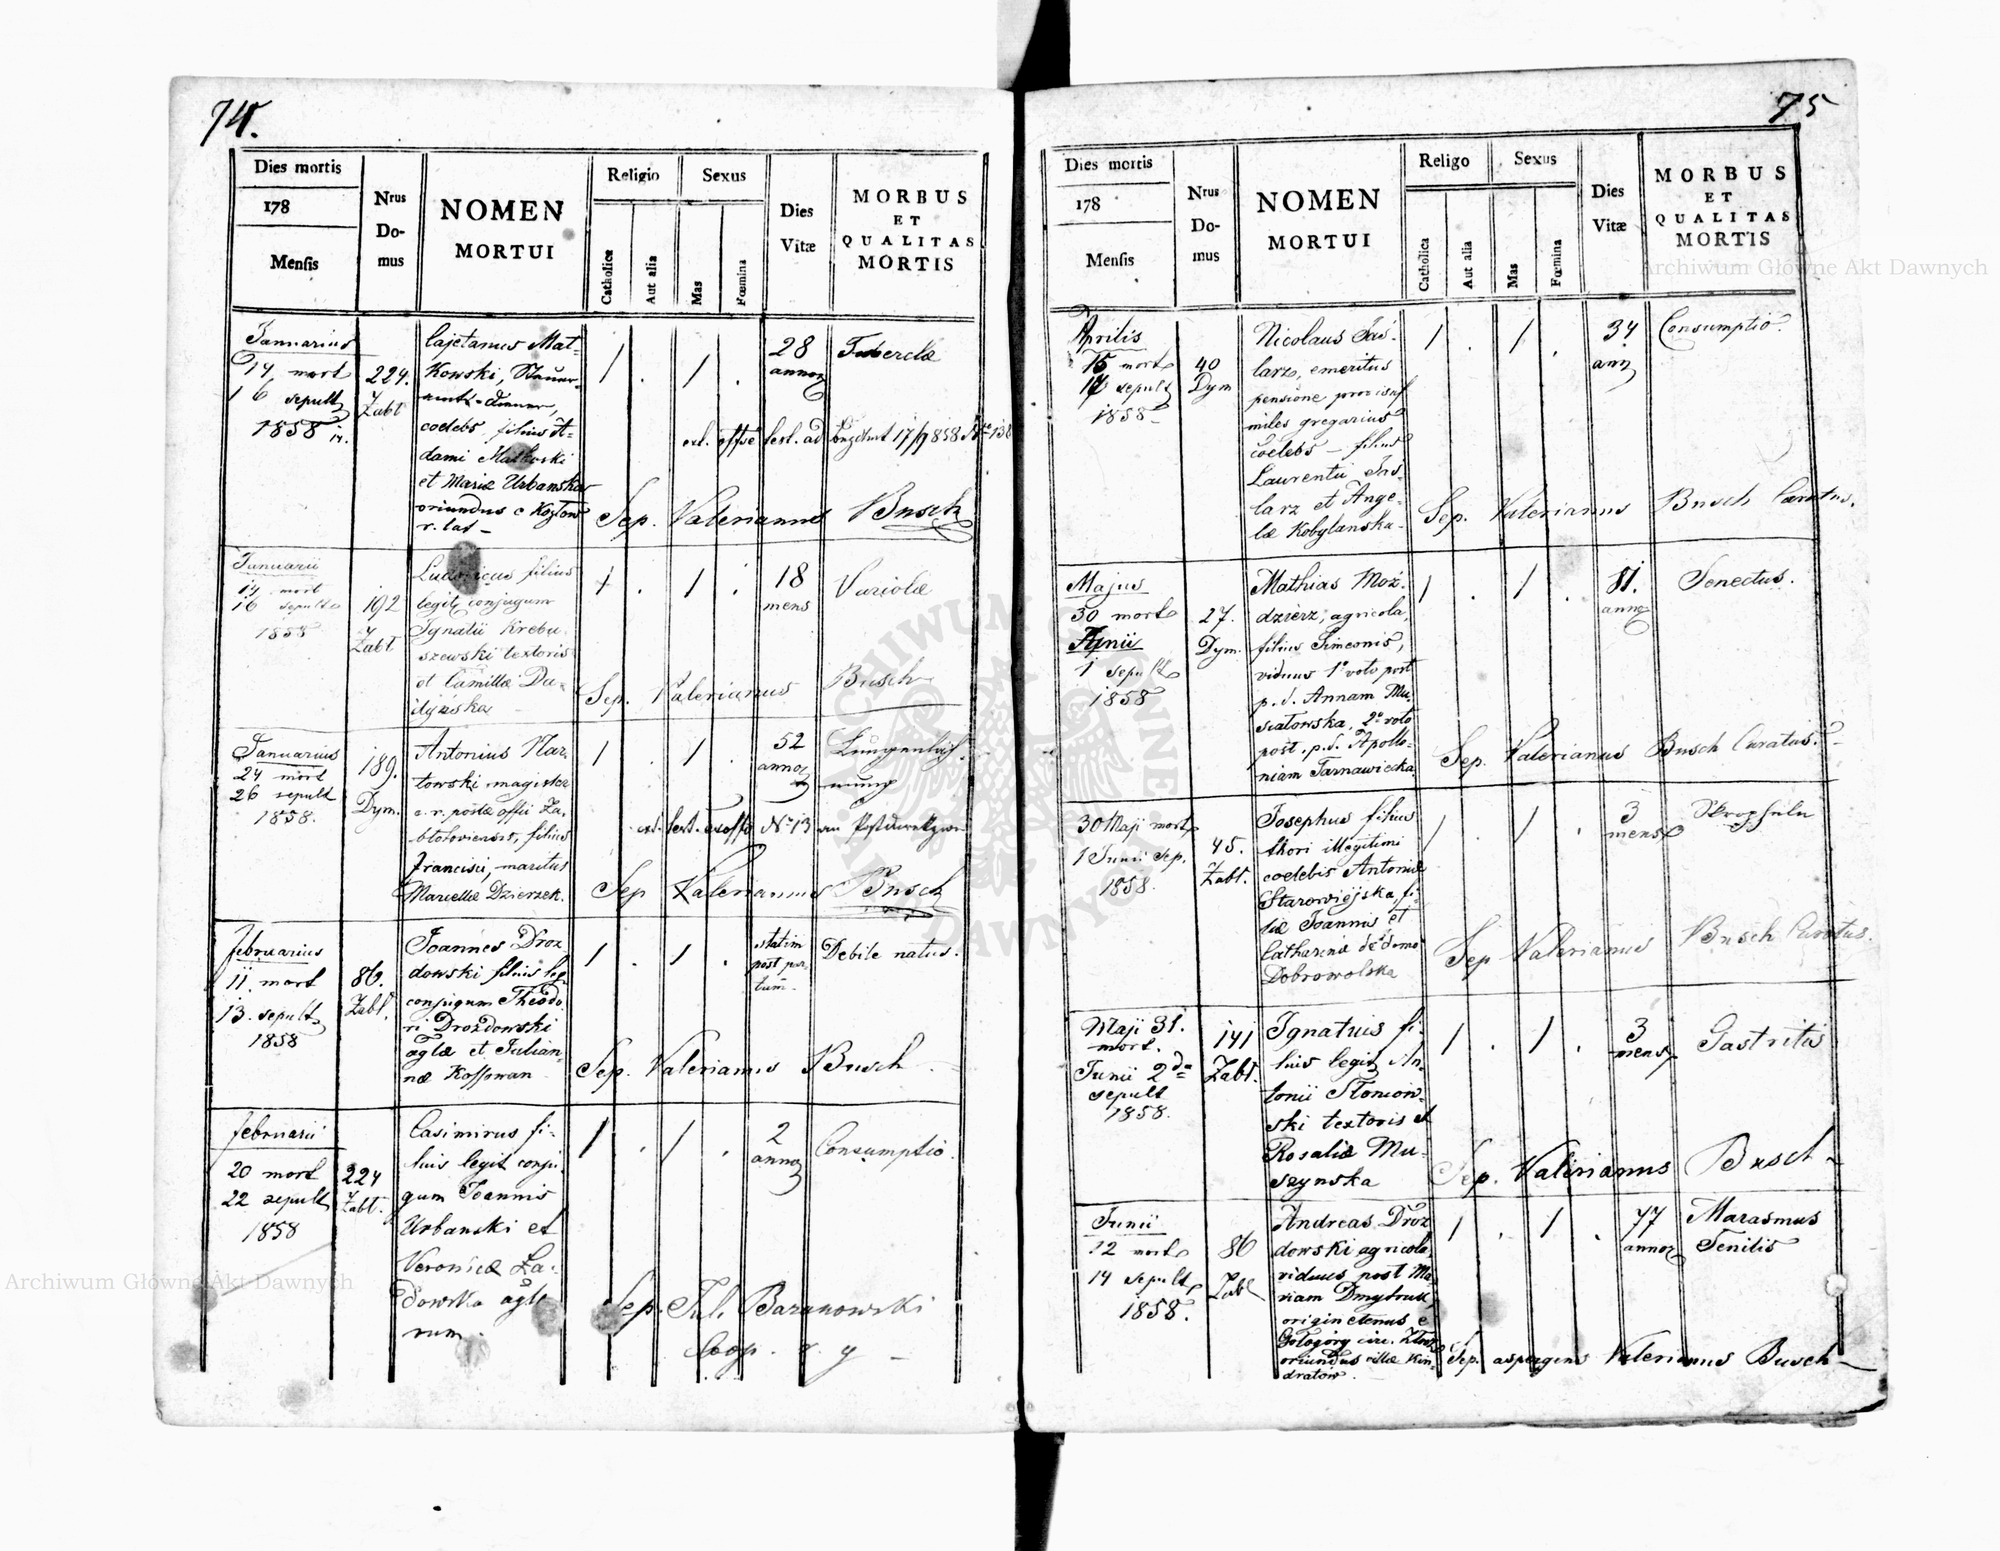 74.
Dies mortis
178
Mensis
Nrus
Do-
mus
NOMEN
MORTUI
Religio
Catholica
Aut alia
Sexus
Mas
Fœmina
Dies
Vitæ
MORBUS
ET
QUALITAS
MORTIS
Januarius
14 mort
16 sepult
1858
224.
Zabł
Cajetanus Mat-
kowski,
coelebs filius A-
dami Matkoski
et Mariæ Urbanska
oriundus e
1 . 1 .
28
annor
Tubercla
Sep. Valerianus Busch
Januarii
14 mort
16 sepult
1858
192
Zabł
Ludovicus filius
legit conjugum
Ignatii Krebu-
szewski textoris
et Camillæ
1 . 1 .
18
mens
Variolæ
Sep. Valerianus Busch
Januarius
24 mort
26 sepult
1858.
189.
Dym.
Antonius Mar-
towski magister
c. r. postæ offii Za-
błotoviensis, filius
Francisci, maritus
Marcellæ Dzierzek.
1 . 1 .
52
annor
No 13
Sep Valerianus Busch
Februarius
11. mort
13. sepult
1858
86.
Zabł.
Joannes Droz
dowski filius leg
conjugum Theodo
ri Drozdowski
agłæ et Julian-
næ Kossowan
1 . 1 .
statim
post par
tum.
Debile natus.
Sep. Valerianus Busch
Februarii
20 mort
22 sepult
1858
224
Zabł.
Casimirus fi-
lius legit conju-
gum Joannis
Urbanski et
Veronicæ Ła-
dowska
rum.
1 . 1 .
2
annor
Consumptio.
Sep. Jul. Baranowski
Coop.
75
Dies mortis
178
Mensis
Nrus
Do-
mus
NOMEN
MORTUI
Religo
Catholica
Aut alia
Sexus
Mas
Fœmina
Dies
Vitæ
MORBUS
ET
QUALITAS
MORTIS
Aprilis
15 mort
17 sepult
1858
40
Dym
Nicolaus Jaś-
larz, emeritus
pensione
miles gregarius
coelebs – filius
Laurentii Jaś
larz et Ange-
læ Kobylanska-
1 . 1 .
34
ann
Consumptio.
Sep. Valerianus Busch Curatus.
Majus
30 mort
Junii
1 sepult
1858
27.
Dym.
Mathias Moź-
dzierz, agricola,
filius Simeonis,
viduus 1o voto post
p. d. Annam Mu-
siatowska, 2o voto
post. p. d. Apollo-
niam Tarnawiecka
1 . 1 .
81.
annor
Senectus.
Sep. Valerianus Busch Curatus.
30 Maji mort
1 Junii sep.
1858.
45.
Zabł.
Josephus filius
thori illegitimi
coelebis Antoniæ
Starowiejska, fi-
liæ Joannis et
Catharinæ de domo
Dobrowolska
1 . 1 .
3
mens
Skropheln
Sep Valerianus Busch Curatus.
Maji 31.
mort.
Junii 2da
sepult
1858.
141
Zabł.
Ignatius fi-
lius legit An-
tonii Słomow-
ski textoris et
Rosaliæ Mu-
szynska
1 . 1 .
3
mens
Gastritis
Sep. Valerianus Busch
Junii
12 mort
14 sepult
1858.
86
Zabł
Andreas Droz
dowski agricola,
viduus post Ma-
riam
origin
Gołogory circ.
oriundus villæ Kon-
dratów.
1 . 1 .
77
annor
Marasmus
Senilis
Sep. aspergens Valerianus Busch
Archiwum Główne Akt Dawnych
Archiwum Główne Akt Dawnych
ARCHIWUM GŁÓWNE AKT DAWNYCH